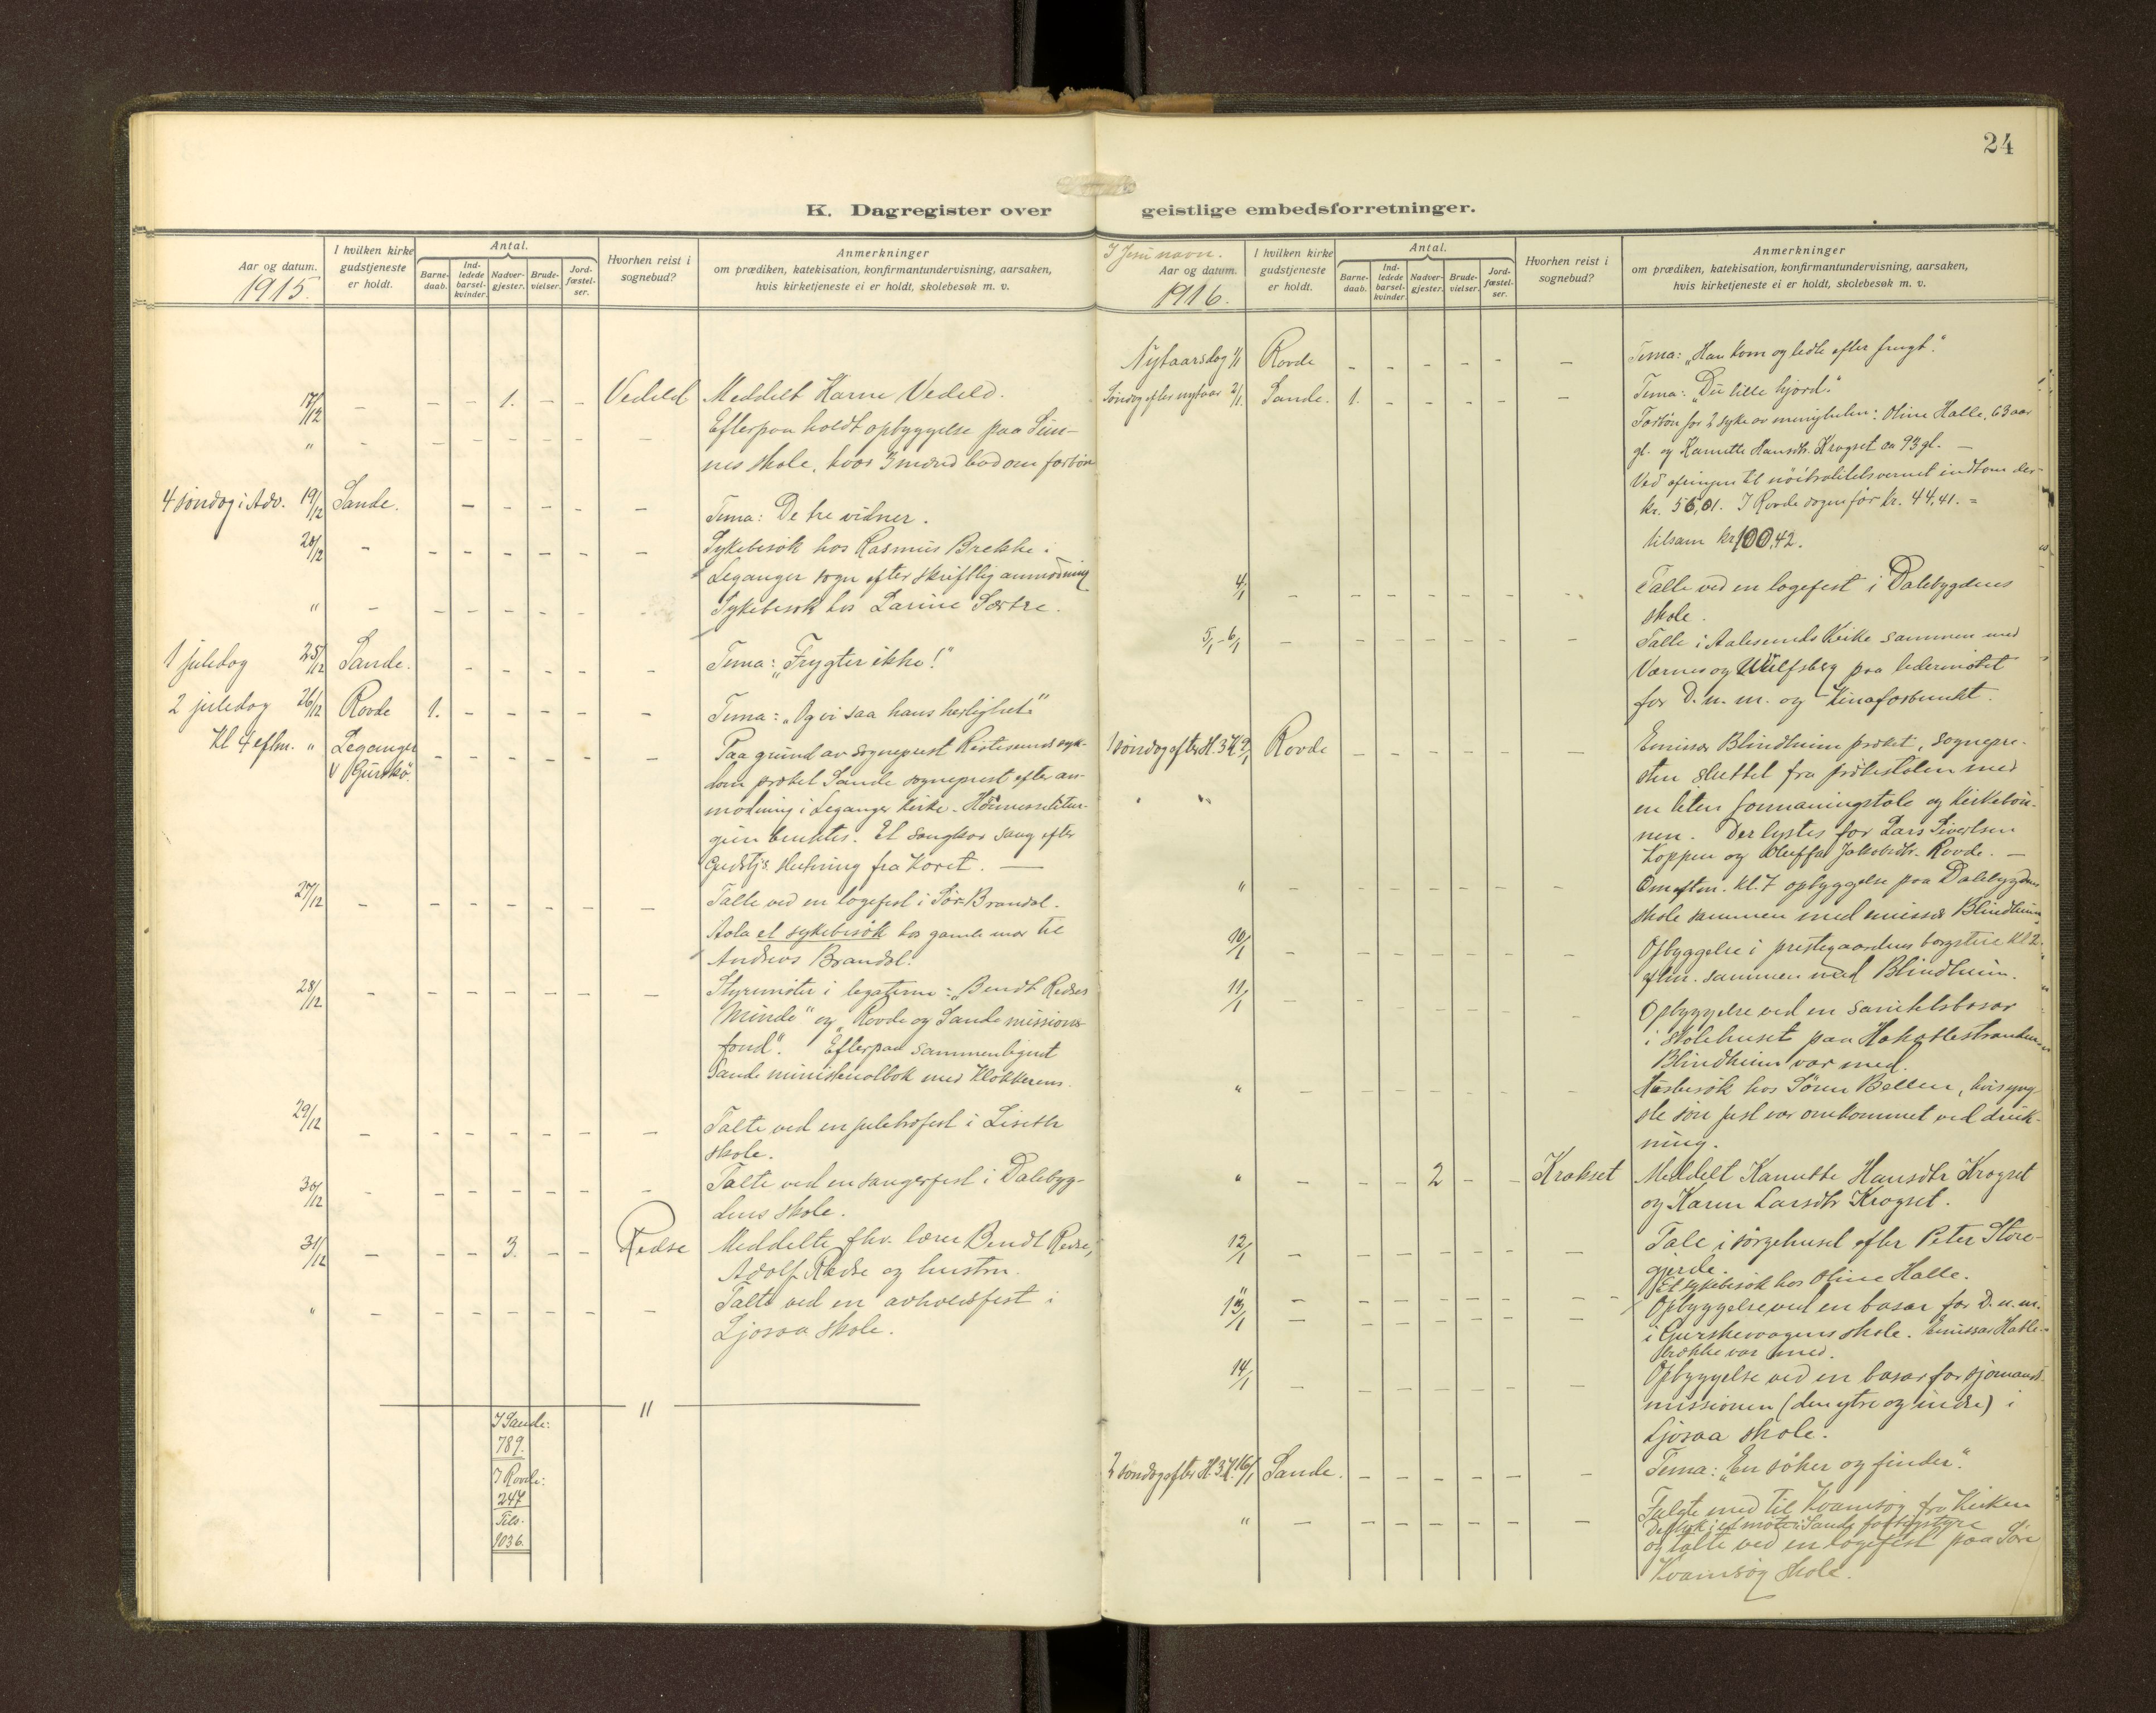 24
K. Dagregister over geistlige embedsforretninger.
Aar og datum.
1915.
I hvilken kirke
gudstjeneste
er holdt.
Antal.
Barne-
daab.
Ind-
ledede
barsel-
kvinder.
Nadver-
gjester.
Brude-
vielser.
Jord-
fæstel-
ser.
Hvorhen reist i
sognebud?
Anmerkninger
om prædiken, katekisation, konfirmantundervisning, aarsaken,
hvis kirketjeneste ei er holdt, skolebesøk m. v.
17/12 - - - 1. - - Vedeld Meddelt Karne Vedeld.
" - - - - - - - Efterpaa holdt opbyggelse paa
nes skole, hvor 3 mænd bad om forbön
4 söndag i Adv. 19/12 Sande. - - - - - Tema: De tre vidner.
20/12 - - - - - - - Sykebesök hos Rasmus Brekke i
Leganger sogn efter skriftlig anmodning
" - - - - - - Sykebesök hos Larine Sætre.
1 juledag 25/12 Sande. - - - - - Tema: "Frygter ikke!"
2 juledag 26/12 Rovde 1. - - - - - Tema: "Og vi saa hans herlighet"
Kl 4 eftm. " Leganger - - - - - - Paa grund av sogneprest syk-
i Gurskö.
dom præket Sande sogneprest efter an-
modning i Leganger kirke. Höimesselitur-
gien benyttes. Et sangkor sang efter
Gudstj's slutning fra Koret. —
27/12 - - - - - - - Talte ved en logefest i Sör-Brandal.
et sykebesök hos gamle mor til
Andreas Brandal.
28/12 - - - - - - - Styremöter i legaterne: "Bendt Redses
Minde" og "Rovde og Sande missions-
fond". Efterpaa sammenlignet
Sande ministerialbok med Klokkerens.
29/12 - - - - - - - Talte ved en juletræfest i Liseth
skole.
30/12 - - - - - - - Talte ved en sangerfest i Dalebyg-
dens skole.
31/12 - - - 3. - - Redse Meddelte fhv. lærer Bendt Redse,
Adolf Redse og hustru.
" - - - - - - - Talte ved en avholdsfest i
Ljosaa skole.
"
I Sande:
789.
I Rovde:
247
Tils.
1036.
I Jesu navn.
Aar og datum.
1916.
I hvilken kirke
gudstjeneste
er holdt.
Antal.
Barne-
daab.
Ind-
ledede
barsel-
kvinder.
Nadver-
gjester.
Brude-
vielser.
Jord-
fæstel-
ser.
Hvorhen reist i
sognebud?
Anmerkninger
om prædiken, katekisation, konfirmantundervisning, aarsaken,
hvis kirketjeneste ei er holdt, skolebesøk m. v.
Nytaarsdag 1/1 Rovde - - - - - - Tema: "Han kom og ledte efter frugt."
Söndag efter nytaar 2/1. Sande. 1. - - - - - Tema: "Du lille hjord."
Forbön for 2 syke av menigheten: Oline Halle, 63 aar
gl. og Kanutte Hansdtr. Krogset ca 93 gl. —
Ved ofringen til nöitralitetsvernet indkom der
kr. 56,01. I Rovde sogn för kr. 44,41. =
tilsam kr 100,42.
4/1 - - - - - - - Talte ved en logefest i Dalebygdens
skole.
5/1-6/1 - - - - - - - Talte i Aalesunds Kirke sammen med
Værnes og Wülfsberg paa ledermötet
for D. n. m. og Kinaforbundet.
1 söndag efter H.3K. 9/1 Rovde - - - - - - Emissær Blindheim præket, sognepre-
sten sluttet fra prækestolen med
en liten formaningstale og kirkebön-
nen. Der lystes for Lars Sivertsen
Koppen og Jakobsdtr. Rovde. —
" - - - - - - - Om eftm. kl. 7 opbyggelse paa Dalebygdens
skole sammen med emissær Blindheim
10/1 - - - - - - - Opbyggelse i prestegaardens borgstue kl 2
eftm. sammen med Blindheim.
11/1 - - - - - - Opbyggelse ved en sanitetsbasar
i skolehuset paa Hakallestranden.
Blindheim var med.
" - - - - - - - Husbesök hos Sören Bellen, hvis yng-
ste sön just var omkommet ved druk-
ning.
" - - - 2 - - Krokset Meddelt Kanutte Hansdtr Krogset
og Karen Larsdtr Krogset.
12/1 - - - - - - - Tale i sörgehuset efter Peter Store-
gjerde.
" - - - - - - - Et sykebesök hos Oline Halle.
13/1 - - - - - - - Opbyggelse ved en basar for D. n. m.
i Gurskevaagens skole. Emissær
var med.
14/1 - - - - - - - Opbyggelse ved en basar for sjömands-
missionen (den ytre og indre) i
Ljosaa skole.
2 söndag efter H.3K. 16/1 Sande. - - - - - - Tema: "En söker og finder."
" - - - - - - - Fulgte med til Kvamsöy fra Kirken
Deltok i et möte i Sande forsynstyre
og talte ved en logefest paa Söre
Kvamsöy skole.